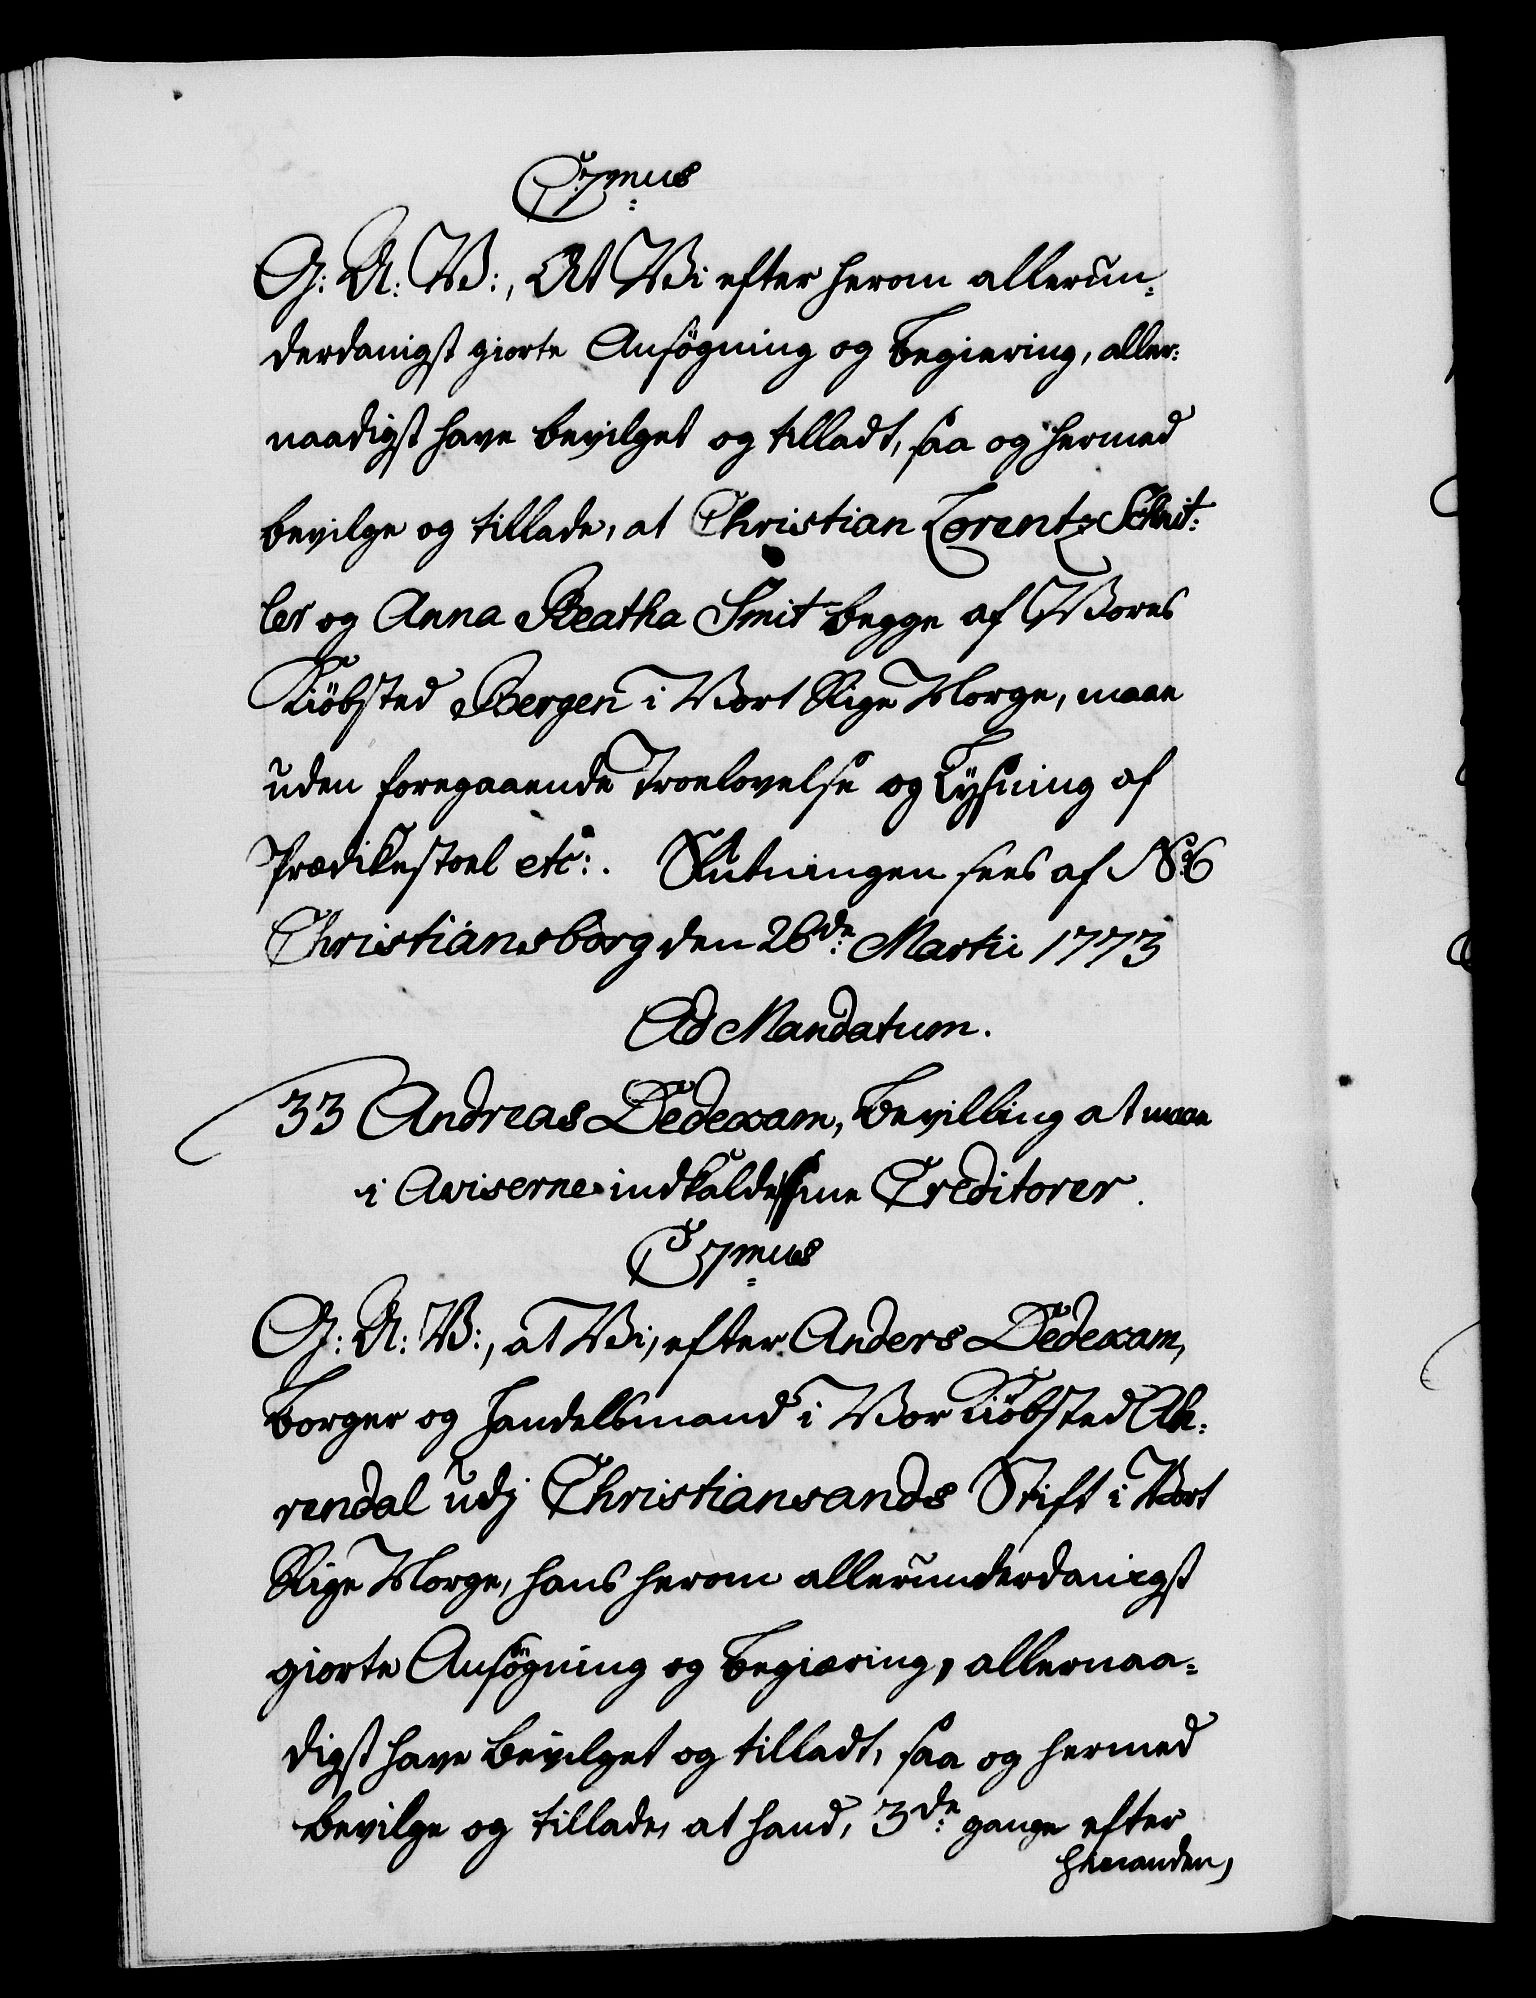 C7mus
G: A: V:, At Vi efter herom allerun=
derdanigst giorte Ansögning og Begiering, aller=
naadigst have bevilget og tilladt, saa og hermed
bevilge og tillade, at Christian Lorentz Schrit=
ler og Anna Beatha Smit begge af Vores
Kiöbsted Bergen i Vort Rige Norge, maae
uden foregaaende Troelovelse og Lysning af
Prædikestoel etc:. Slutningen sees af No 6
Christiansborg den 26de Martii 1773
Ad Mandatum.
33 Andreas Dedexam, Bevilling at maae
i Aviserne indkalde sine Creditorer.
C7mus
G: A: V:, at Vi, efter Anders Dedexam,
Borger og Handelsmand i Vor Kiöbsted Ah=
rendal udj Christiansands Stift i Vort
Rige Norge, hans herom allerunderdanigst
giorte Ansögning og Begiæring, allernaa=
digst have bevilget og tilladt, saa og hermed
bevilge og tillade, at hand, 3de gange efter
hinanden,